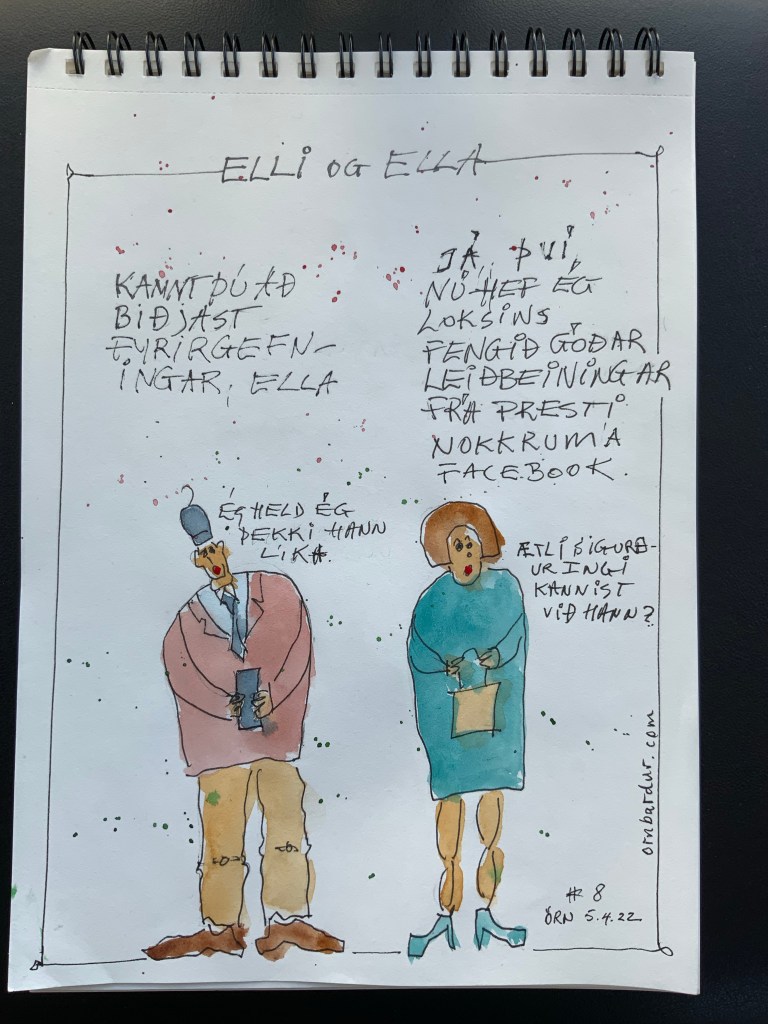 ELLI OG ELLA
KANNT ÞÚ AÐ
BIÐJAST
FYRIRGEFN-
INGAR, ELLA
JÁ, ÞVÍ
NÚ HEF ÉG
LOKSINS
FENGIÐ GÓÐAR
LEIÐBEININGAR
FRÁ PRESTI
NOKKRUM Á
FACEBOOK.
ÉG HELD ÉG
ÞEKKI HANN
LÍKA.
ÆTLI SIGURÐ-
UR INGI
KANNIST
VIÐ HANN?
ornbardur.com
# 8
ÖRN 5.4.22